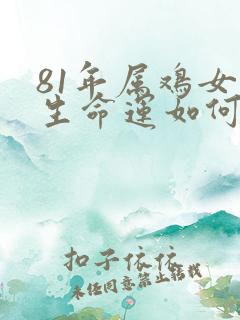 81年属鸡女
生命运如何
扣子依依
未经同意禁止转载